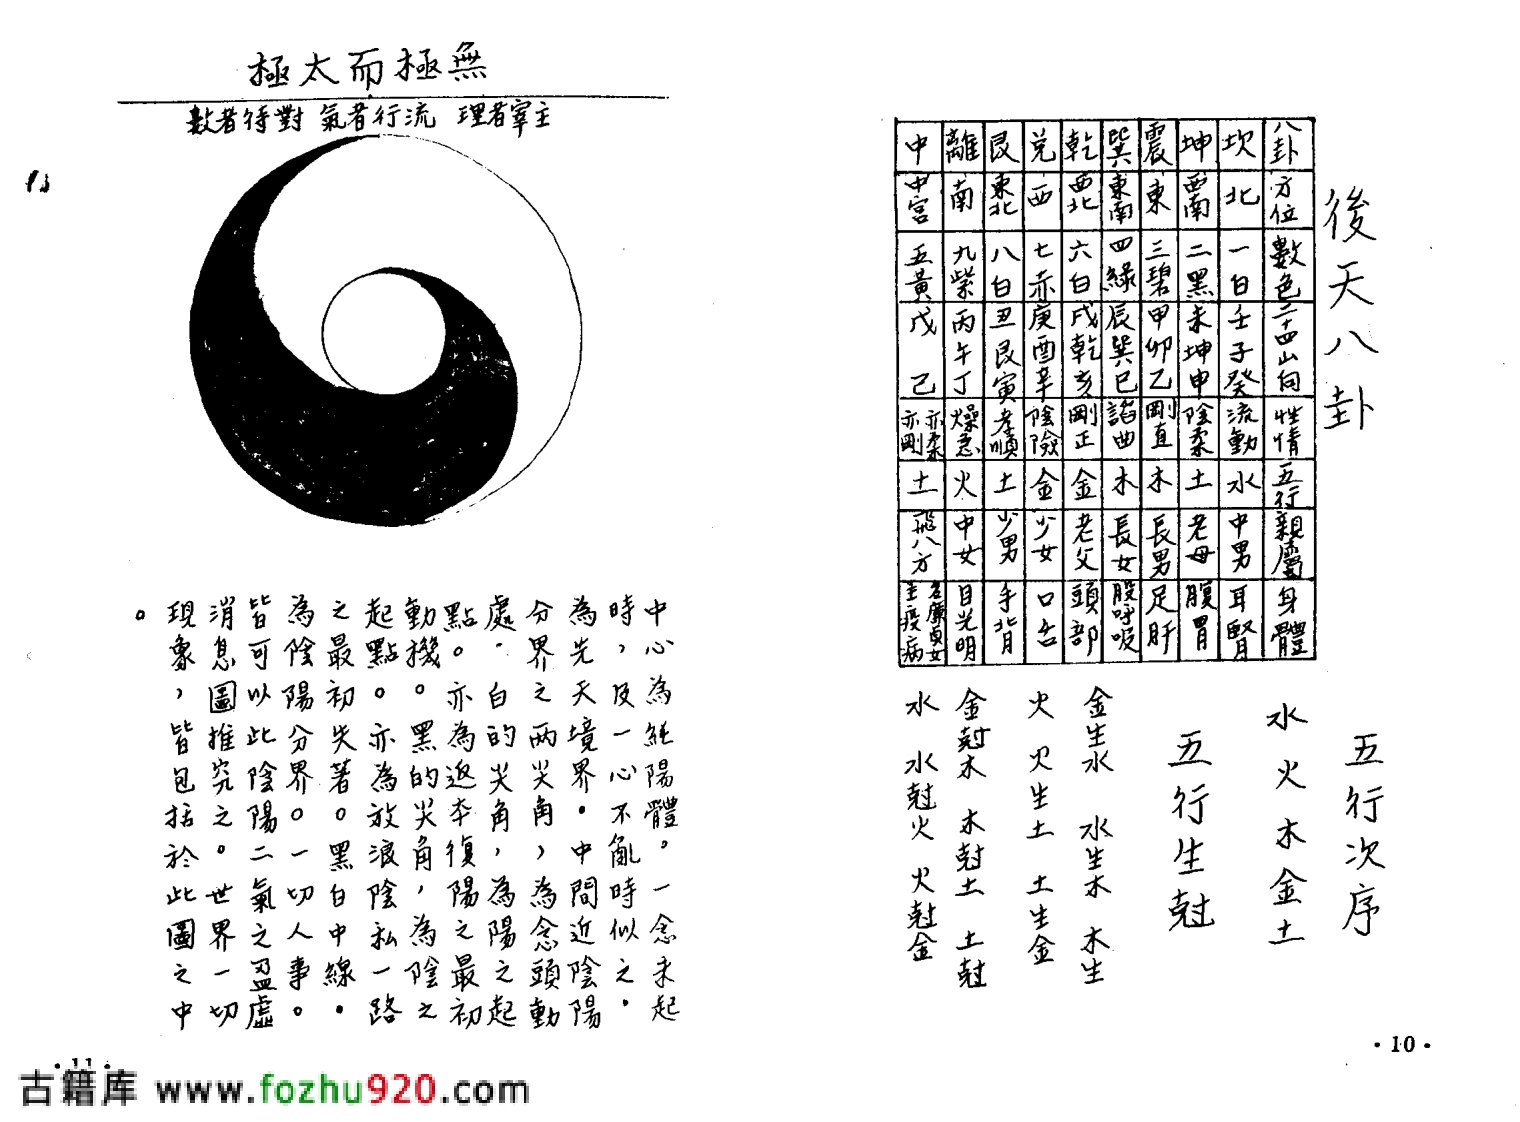 後天八卦
八卦 方位 數色 二十四山向 性情 五行 親屬 身體
坎 北 一白 壬子癸 流動 水 中男 耳腎
坤 西南 二黑 未坤申 陰柔 土 老母 腹胃
震 東 三碧 甲卯乙 剛直 木 長男 足肝
巽 東南 四綠 辰巽巳 諂曲 木 長女 股呼吸
乾 西北 六白 戌乾亥 剛正 金 老父 頭部
兌 西 七赤 庚酉辛 陰險 金 少女 口舌
艮 東北 八白 丑艮寅 孝順 土 少男 手背
離 南 九紫 丙午丁 燥急 火 中女 目光明
中 中宮 五黃 戊己 亦柔亦剛 土 飛八方 名廉貞女主疫病
五行次序
水火木金土
五行生尅
金生水 水生木 木生
火 火生土 土生金
金尅木 木尅土 土尅
水 水尅火 火尅金
·10·
無極而太極
主宰者理 流行者氣 對待者數
中心為純陽體。一念未起
時，及一心不亂時似之．
為先天境界．中間近陰陽
分界之兩尖角，為念頭動
處．白的尖角，為陽之起
點。亦為返本復陽之最初
動機。黑的尖角，為陰之
起點。亦為放浪陰私一路
之最初失著。黑白中線．
為陰陽分界。一切人事。
皆可以此陰陽二氣之盈虛
消息圖推究之。世界一切
現象，皆包括於此圖之中
。
·11·
古籍库 www.fozhu920.com